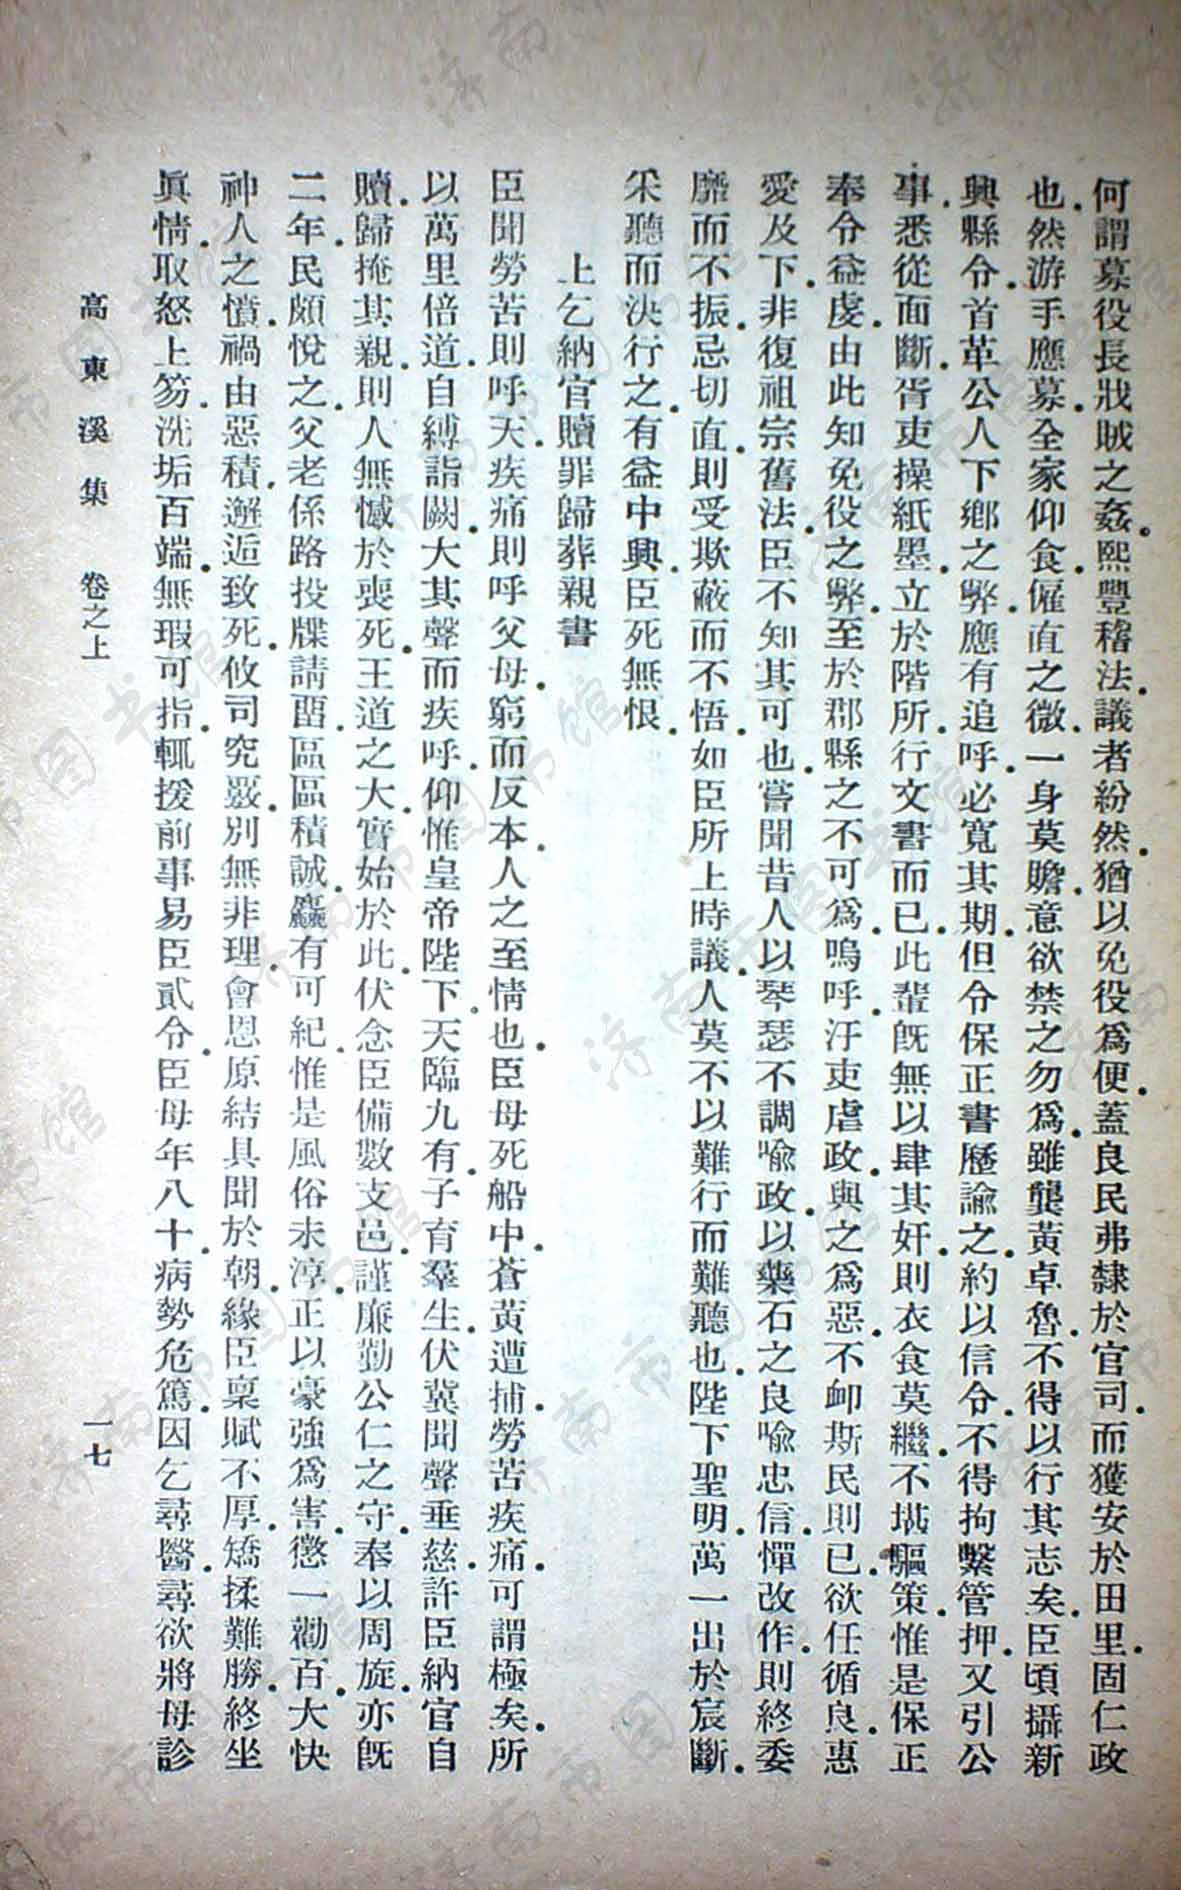 何謂募役長戕賊之姦熙豐稽法議者紛然猶以免役爲便蓋良民弗隸於官司而獲安於田里固仁政
也然游手應募全家仰食僱直之微一身莫贍意欲禁之勿爲雖龔黃卓魯不得以行其志矣臣頃攝新
興縣令首革公人下鄉之弊應有追呼必寬其期但令保正書歷諭之約以信令不得拘繫管押又引公
事悉從面斷胥吏操紙墨立於階所行文書而已此輩旣無以肆其奸則衣食莫繼不堪驅策惟是保正
奉令益虔由此知免役之弊至於郡縣之不可爲嗚呼汙吏虐政與之爲惡不卹斯民則已欲任循良惠
愛及下非復祖宗舊法臣不知其可也嘗聞昔人以琴瑟不調喩政以藥石之良喩忠信憚改作則終委
靡而不振忌切直則受欺蔽而不悟如臣所上時議人莫不以難行而難聽也陛下聖明萬一出於宸斷
采聽而決行之有益中興臣死無恨
上乞納官贖罪歸葬親書
臣聞勞苦則呼天疾痛則呼父母窮而反本人之至情也臣母死船中蒼黃遭捕勞苦疾痛可謂極矣所
以萬里倍道自縛詣闕大其聲而疾呼仰惟皇帝陛下天臨九有子育羣生伏冀聞聲垂慈許臣納官自
贖歸掩其親則人無憾於喪死王道之大實始於此伏念臣備數支邑謹廉勤公仁之守奉以周旋亦旣
二年民頗悅之父老係路投牒請畱區區積誠麤有可紀惟是風俗未淳正以豪強爲害懲一勸百大快
神人之憤禍由惡積邂逅致死攸司究覈別無非理會恩原結具聞於朝緣臣稟賦不厚矯揉難勝終坐
眞情取怒上官洗垢百端無瑕可指輒援前事易臣貳令臣母年八十病勢危篤因乞尋醫尋欲將母診
高東溪集 卷之上 一七
济南市图书馆